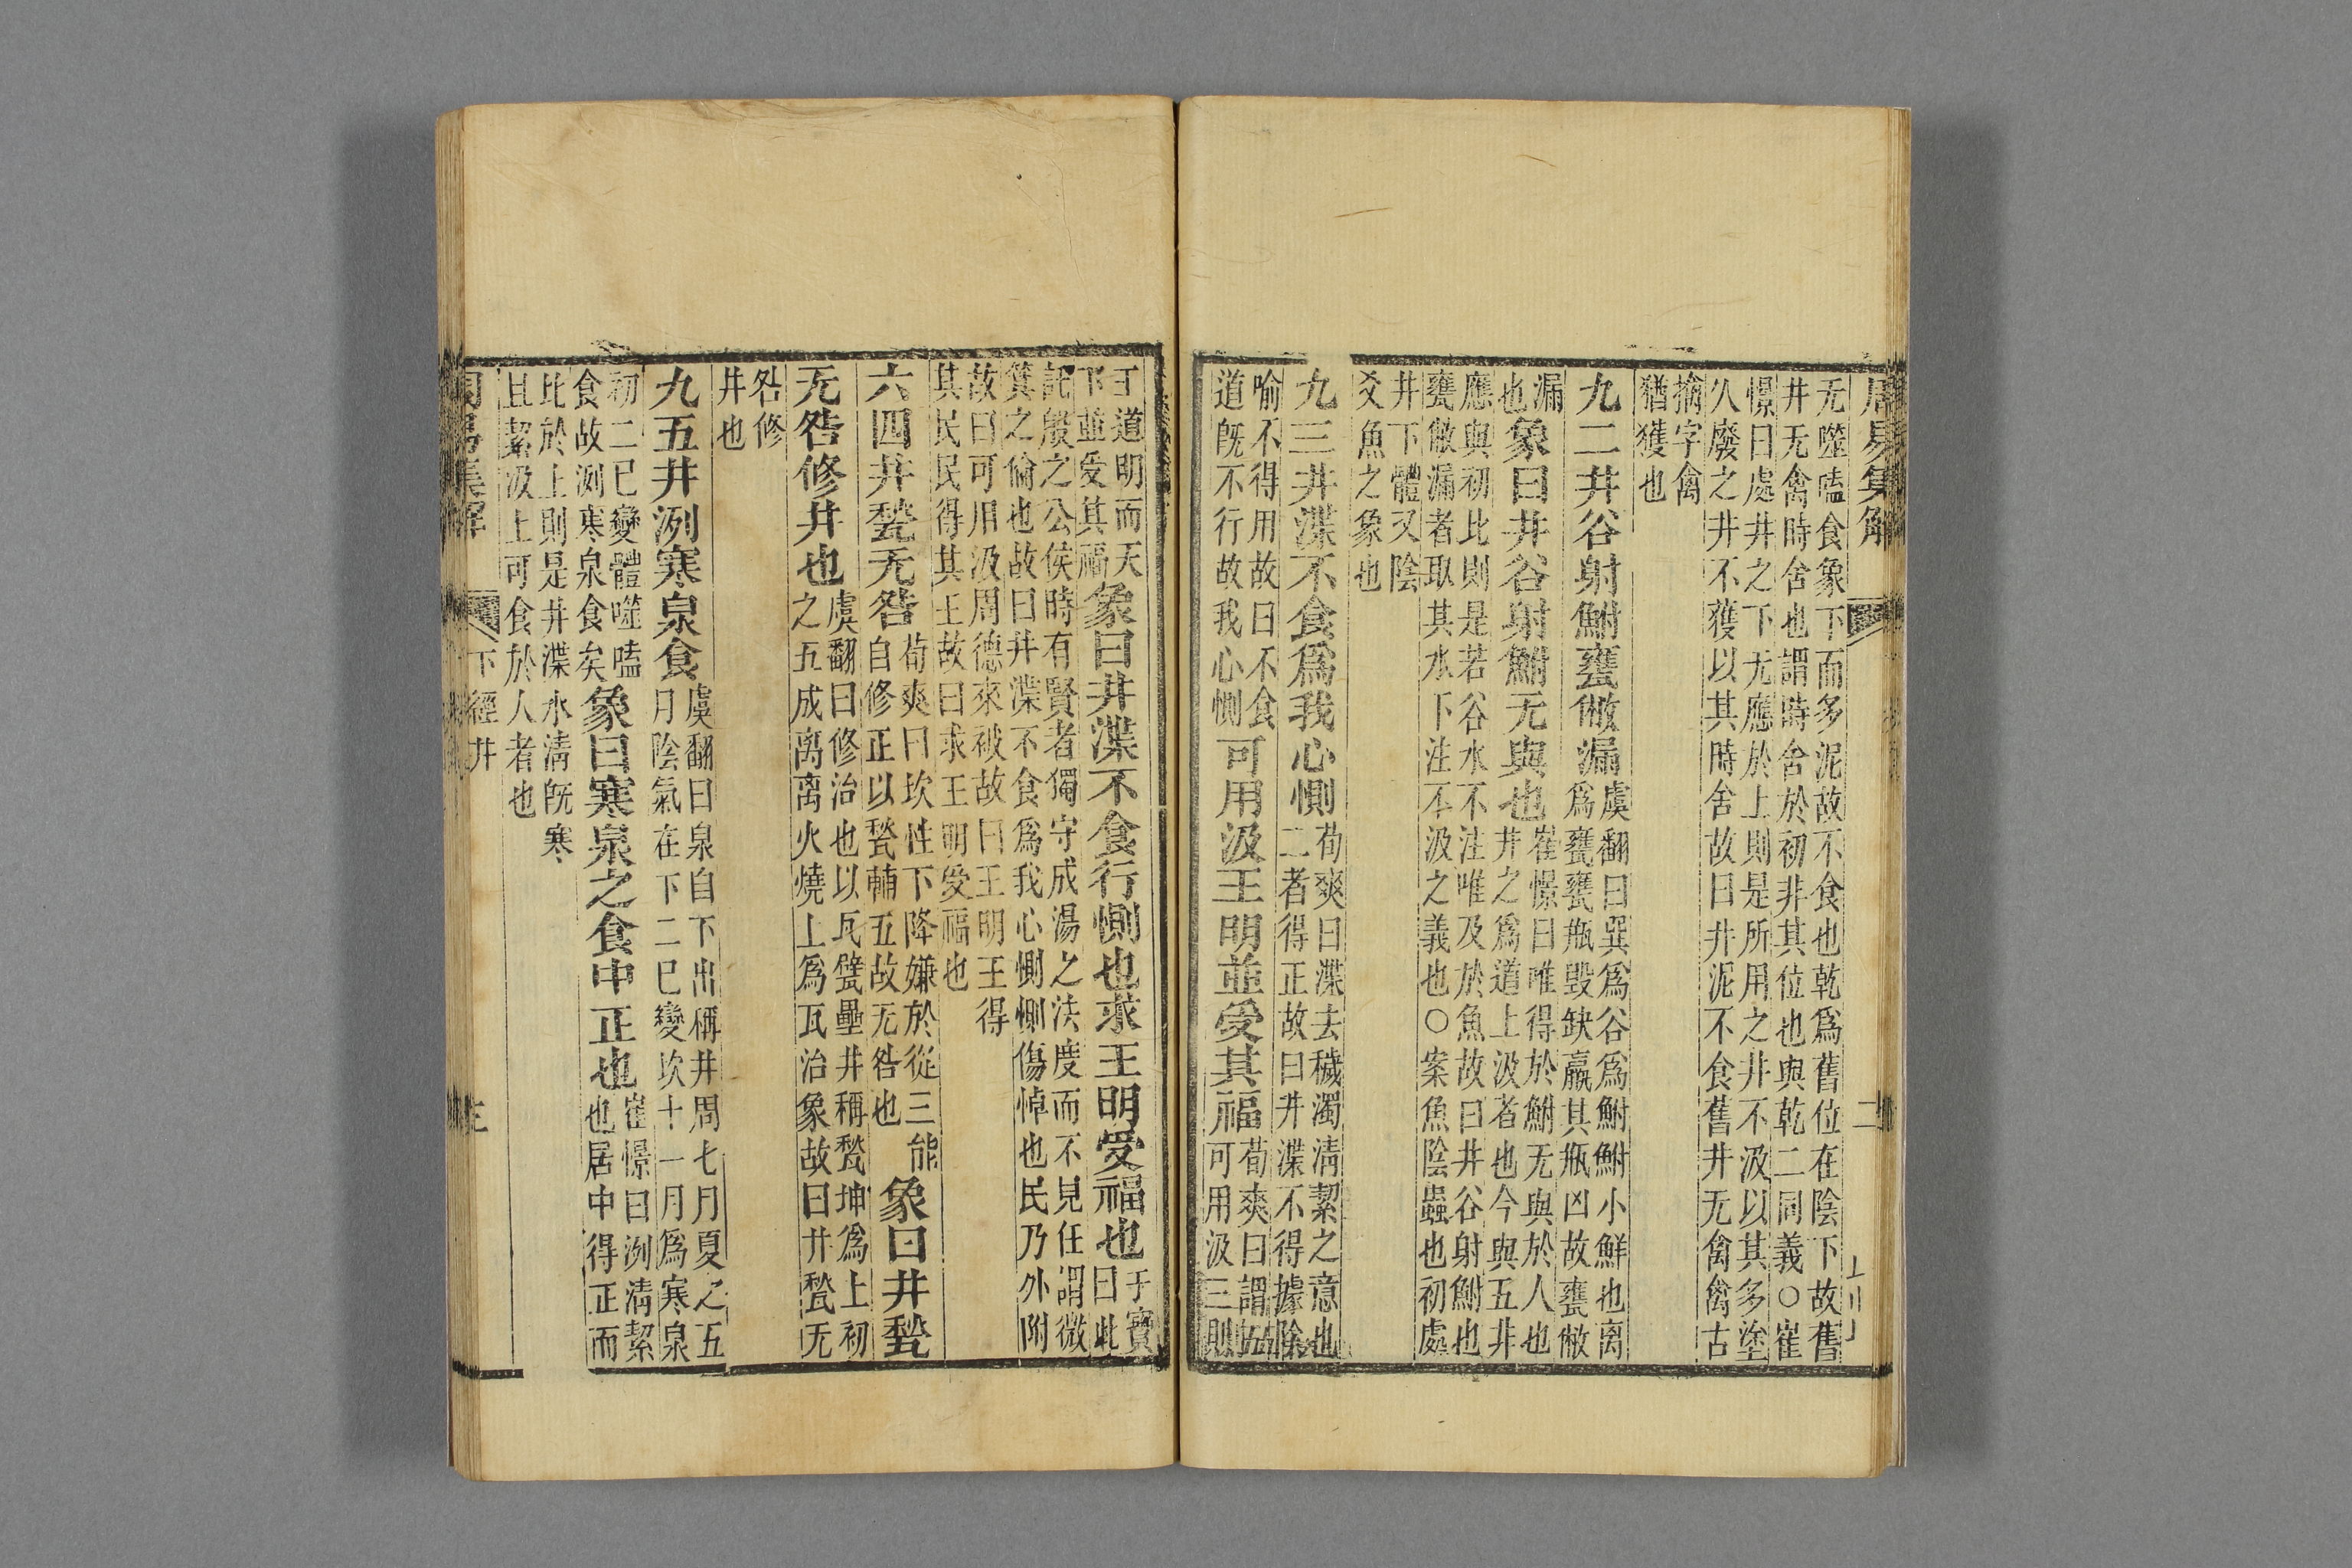 周易集解
无噬嗑食象下而多泥故不食也乾爲舊位在陰下故舊
井无禽時舍也謂時舍於初非其位也與乾二同義○崔
憬曰處井之下无應於上則是所用之井不汲以其多塗
久廢之井不獲以其時舍故曰井泥不食舊井无禽禽古
擒字禽
猶獲也
九二井谷射鮒甕敝漏
虞翻曰巽爲谷爲鮒鮒小鮮也离
爲甕甕瓶毀缺羸其瓶凶故甕敝
漏
也
象曰井谷射鮒无與也
崔憬曰唯得於鮒无與於人也
井之爲道上汲者也今與五非
應與初比則是若谷水不注唯及於魚故曰井谷射鮒也
甕敝漏者取其水下注不汲之義也○案魚陰蟲也初處
井下體又陰
爻魚之象也
九三井渫不食爲我心惻
荀爽曰渫去穢濁清絜之意也
二者得正故曰井渫不得據陰
喻不得用故曰不食
道旣不行故我心惻
可用汲王明並受其福
荀爽曰謂五
可用汲三則
王道明而天
下並受其福
象曰井渫不食行惻也求王明受福也
于寶
曰此
託殷之公侯時有賢者獨守成湯之法度而不見任謂微
箕之倫也故曰井渫不食爲我心惻惻傷悼也民乃外附
故曰可用汲周德來被故曰王明王得
其民民得其王故曰求王明受福也
六四井甃无咎
荀爽曰坎性下降嫌於從三能
自修正以甃輔五故无咎也
象曰井甃
无咎修井也
虞翻曰修治也以瓦甓壘井稱甃坤爲上初
之五成离离火燒上爲瓦治象故曰井甃无
咎修
井也
九五井洌寒泉食
虞翻曰泉自下出稱井周七月夏之五
月陰氣在下二已變坎十一月爲寒泉
初二已變體噬嗑
食故洌寒泉食矣
象曰寒泉之食中正也
崔憬曰洌清絜
也居中得正而
比於上則是井渫水清旣寒
且絜汲上可食於人者也
周易集解
下經 井